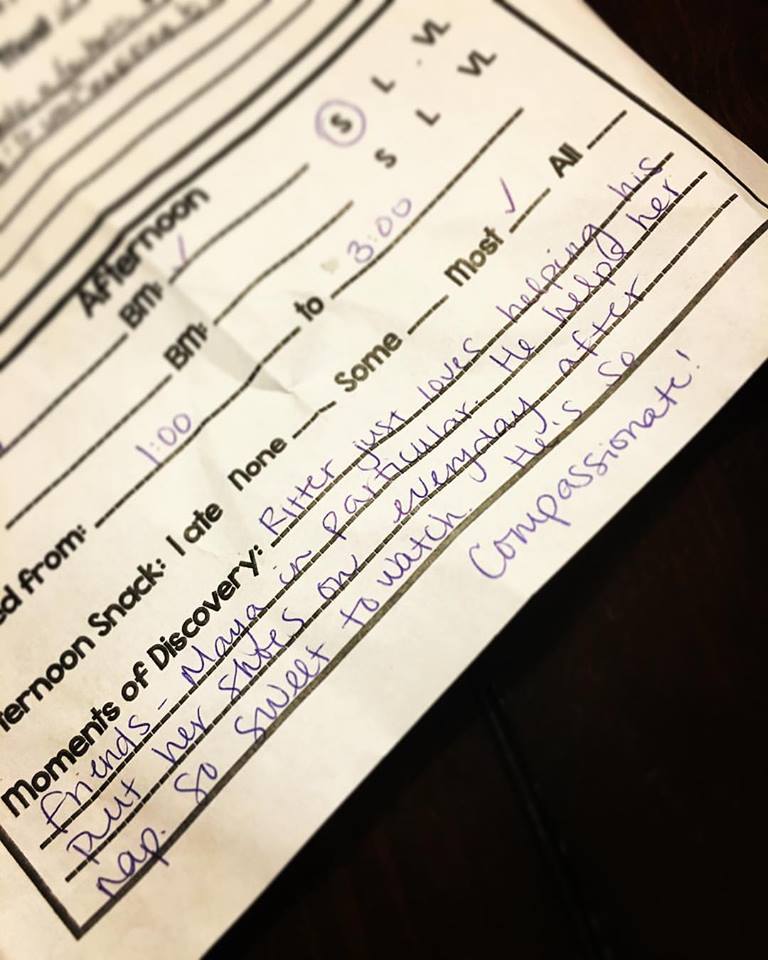 Afternoon
BM: ✓ S L VL
BM: S L VL
ed from: 1:00 to 3:00
ternoon Snack: I ate None Some Most ✓ All
Moments of Discovery: Ritter just loves helping his
friends - Maya in particular. He helped her
put her shoes on everyday after
nap. So sweet to watch. He's so
Compassionate!